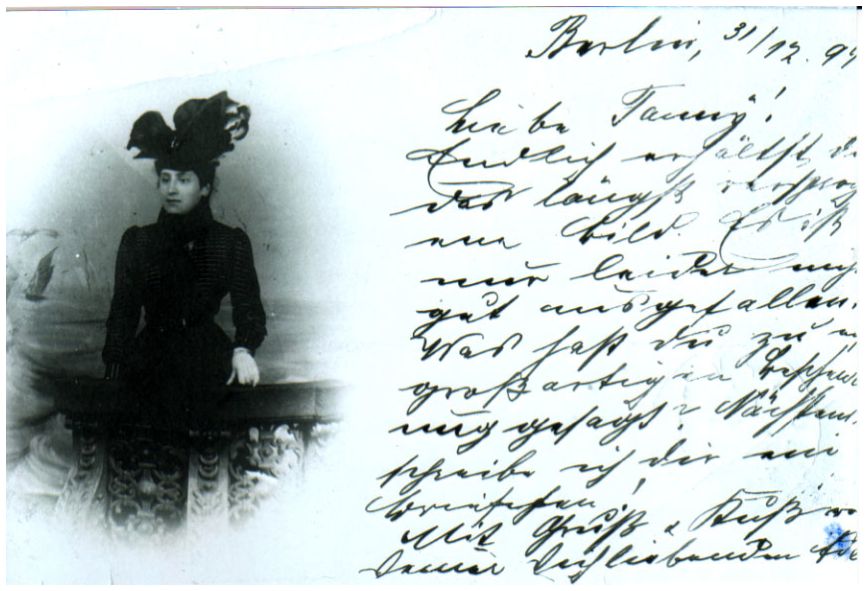 Berlin, 31/12. 9
Liebe Fanny!
Endlich erhältst d
das längst versproch
ene Bild. Es ist
nur leider nich
gut ausgefallen.
Was hast du zu
großartigen Beschee
rung gesagt? Nächstens
schreibe ich dir ein
Briefchen!
Mit Gruß & Kuß vo
Deiner Dichliebenden